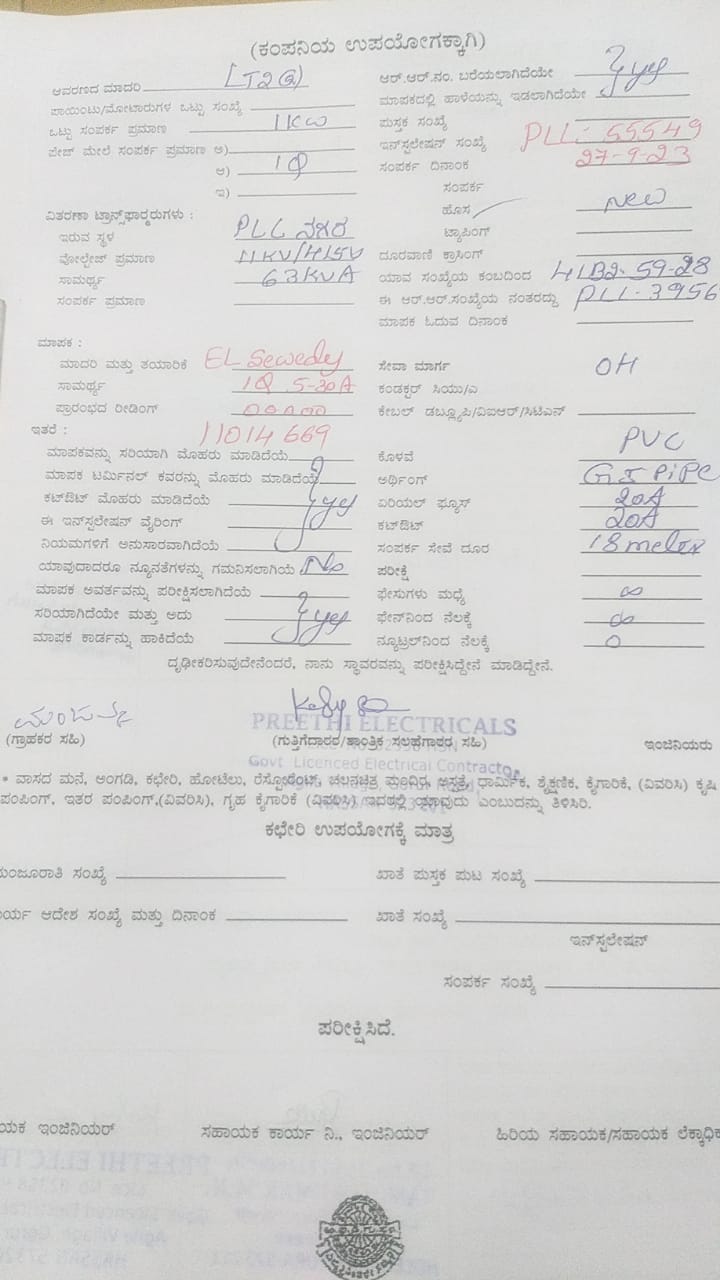 (ಕಂಪನಿಯ ಉಪಯೋಗಕ್ಕಾಗಿ)
ಆವರಣದ ಮಾದರಿ
ಪಾಯಿಂಟು/ಮೋಟಾರುಗಳ ಒಟ್ಟು ಸಂಖ್ಯೆ
ಒಟ್ಟು ಸಂಪರ್ಕ ಪ್ರಮಾಣ 1KW
ಪೇಜ್ ಮೇಲೆ ಸಂಪರ್ಕ ಪ್ರಮಾಣ ಅ)
ಆ) 1Φ
ಇ)
ವಿತರಣಾ ಟ್ರಾನ್ಸ್‌ಫಾರ್ಮರುಗಳು :
ಇರುವ ಸ್ಥಳ PLC ನಗರ
ವೋಲ್ಟೇಜ್ ಪ್ರಮಾಣ 11KV/415V
ಸಾಮರ್ಥ್ಯ 63KVA
ಸಂಪರ್ಕ ಪ್ರಮಾಣ
ಆರ್.ಆರ್.ನಂ. ಬರೆಯಲಾಗಿದೆಯೇ
yes
ಮಾಪಕದಲ್ಲಿ ಹಾಳೆಯನ್ನು ಇಡಲಾಗಿದೆಯೇ
ಪುಸ್ತಕ ಸಂಖ್ಯೆ
ಇನ್‌ಸ್ಟಲೇಷನ್ ಸಂಖ್ಯೆ PLL:- 55549
ಸಂಪರ್ಕ ದಿನಾಂಕ 27-9-23
ಸಂಪರ್ಕ
ಹೊಸ New
ಟ್ಯಾಪಿಂಗ್
ದೂರವಾಣಿ ಕ್ರಾಸಿಂಗ್
ಯಾವ ಸಂಖ್ಯೆಯ ಕಂಬದಿಂದ
ಈ ಆರ್.ಆರ್.ಸಂಖ್ಯೆಯ ನಂತರದ್ದು PLL-3956
ಮಾಪಕ ಓದುವ ದಿನಾಂಕ
ಮಾಪಕ :
ಮಾದರಿ ಮತ್ತು ತಯಾರಿಕೆ EL Sewedy
ಸಾಮರ್ಥ್ಯ 1Φ 5-30A
ಪ್ರಾರಂಭದ ರೀಡಿಂಗ್ 00000
ಇತರೆ : 11014669
ಮಾಪಕವನ್ನು ಸರಿಯಾಗಿ ಮೊಹರು ಮಾಡಿದೆಯೆ
ಮಾಪಕ ಟರ್ಮಿನಲ್ ಕವರನ್ನು ಮೊಹರು ಮಾಡಿದೆಯೆ
ಕಟ್‌ಔಟ್ ಮೊಹರು ಮಾಡಿದೆಯೆ yes
ಈ ಇನ್‌ಸ್ಟಲೇಷನ್ ವೈರಿಂಗ್
ನಿಯಮಗಳಿಗೆ ಅನುಸಾರವಾಗಿದೆಯೆ
ಯಾವುದಾದರೂ ನ್ಯೂನತೆಗಳನ್ನು ಗಮನಿಸಲಾಗಿಯೆ No
ಮಾಪಕ ಅವರ್ತವನ್ನು ಪರೀಕ್ಷಿಸಲಾಗಿದೆಯೆ
ಸರಿಯಾಗಿದೆಯೇ ಮತ್ತು ಅದು yes
ಮಾಪಕ ಕಾರ್ಡನ್ನು ಹಾಕಿದೆಯೆ
ಸೇವಾ ಮಾರ್ಗ OH
ಕಂಡಕ್ಟರ್ ಸಿಯು/ಎ
ಕೇಬಲ್ ಡಬ್ಲ್ಯೂಪಿ/ವಿಐಆರ್/ಸಿಟಿಎಸ್
ಕೊಳವೆ PVC
ಅರ್ಥಿಂಗ್ GI PiPe
ಏರಿಯಲ್ ಫ್ಯೂಸ್ 20A
ಕಟ್‌ಔಟ್ 20A
ಸಂಪರ್ಕ ಸೇವೆ ದೂರ 18 meter
ಪರೀಕ್ಷೆ
ಫೇಸುಗಳು ಮಧ್ಯೆ ∞
ಫೇಸ್‌ನಿಂದ ನೆಲಕ್ಕೆ ∞
ನ್ಯೂಟ್ರಲ್‌ನಿಂದ ನೆಲಕ್ಕೆ 0
ದೃಢೀಕರಿಸುವುದೇನೆಂದರೆ, ನಾನು ಸ್ಥಾವರವನ್ನು ಪರೀಕ್ಷಿಸಿದ್ದೇನೆ ಮಾಡಿದ್ದೇನೆ.
PREETHI ELECTRICALS
(ಗ್ರಾಹಕರ ಸಹಿ) (ಗುತ್ತಿಗೆದಾರರ/ತಾಂತ್ರಿಕ ಸಲಹೆಗಾರರ ಸಹಿ) ಇಂಜಿನಿಯರು
Govt Licenced Electrical Contractor
* ವಾಸದ ಮನೆ, ಅಂಗಡಿ, ಕಛೇರಿ, ಹೋಟೆಲು, ರೆಸ್ಟೋರೆಂಟ್, ಚಲನಚಿತ್ರ ಮಂದಿರ, ಆಸ್ಪತ್ರೆ, ಧಾರ್ಮಿಕ, ಶೈಕ್ಷಣಿಕ, ಕೈಗಾರಿಕೆ, (ವಿವರಿಸಿ) ಕೃಷಿ
ಪಂಪಿಂಗ್, ಇತರ ಪಂಪಿಂಗ್,(ವಿವರಿಸಿ), ಗೃಹ ಕೈಗಾರಿಕೆ (ವಿವರಿಸಿ) ಇವರಲ್ಲಿ ಯಾವುದು ಎಂಬುದನ್ನು ತಿಳಿಸಿರಿ.
ಕಛೇರಿ ಉಪಯೋಗಕ್ಕೆ ಮಾತ್ರ
ಮಂಜೂರಾತಿ ಸಂಖ್ಯೆ ಖಾತೆ ಪುಸ್ತಕ ಪುಟ ಸಂಖ್ಯೆ
ರ್ಯ ಆದೇಶ ಸಂಖ್ಯೆ ಮತ್ತು ದಿನಾಂಕ ಖಾತೆ ಸಂಖ್ಯೆ
ಇನ್‌ಸ್ಟಲೇಷನ್
ಸಂಪರ್ಕ ಸಂಖ್ಯೆ
ಪರೀಕ್ಷಿಸಿದೆ.
ಯಕ ಇಂಜಿನಿಯರ್ ಸಹಾಯಕ ಕಾರ್ಯ ನಿ., ಇಂಜಿನಿಯರ್ ಹಿರಿಯ ಸಹಾಯಕ/ಸಹಾಯಕ ಲೆಕ್ಕಾಧಿಕ